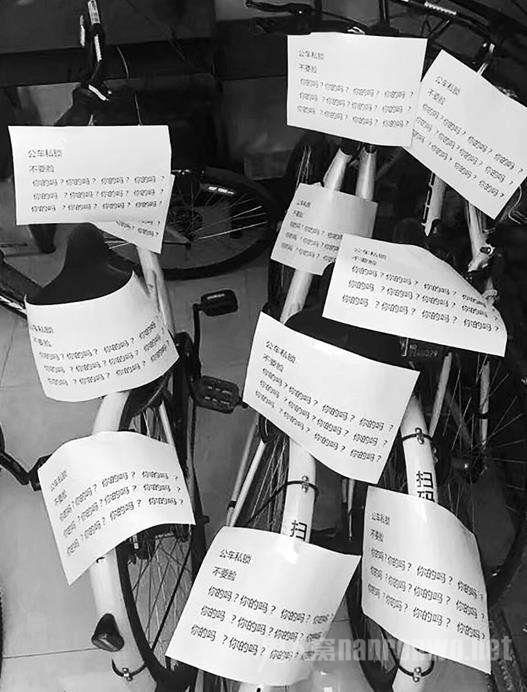 公车私锁
不要脸
你的吗？你的吗？你的吗？你的吗？
你的吗？你的吗？你的吗？你的吗？
你的吗？你的吗？你的吗？你的吗？
公车私锁
不要脸
你的吗？你的吗？你的吗？你的吗？
你的吗？你的吗？你的吗？你的吗？
你的吗？你的吗？你的吗？你的吗？
公车私锁
不要脸
你的吗？你的吗？你的吗？你的吗？
你的吗？你的吗？你的吗？你的吗？
你的吗？你的吗？你的吗？你的吗？
公车私锁
不要脸
你的吗？你的吗？
你的吗？你的吗？
你的吗？你的吗？
公车私锁
不要脸
你的吗？你的吗？你的吗？你的吗？
你的吗？你的吗？你的吗？你的吗？
你的吗？你的吗？你的吗？你的吗？
公车私锁
不要脸
你的吗？你的吗？你的吗？你的吗？
你的吗？你的吗？你的吗？你的吗？
你的吗？你的吗？你的吗？你的吗？
公车私锁
不要脸
你的吗？你的吗？你的吗？你的吗？
你的吗？你的吗？你的吗？你的吗？
你的吗？你的吗？你的吗？你的吗？
公车私锁
不要脸
你的吗？你的吗？你的吗？你的吗？
你的吗？你的吗？你的吗？你的吗？
你的吗？你的吗？你的吗？你的吗？
扫码
扫
公车私锁
不要脸
你的吗？你的吗？你的吗？你的吗？
你的吗？你的吗？你的吗？你的吗？
你的吗？你的吗？你的吗？你的吗？
公车私锁
不要脸
你的吗？你的吗？你的吗？你的吗？
你的吗？你的吗？你的吗？你的吗？
你的吗？你的吗？你的吗？你的吗？